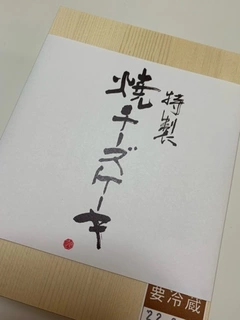 特製
焼チーズケーキ
要冷蔵